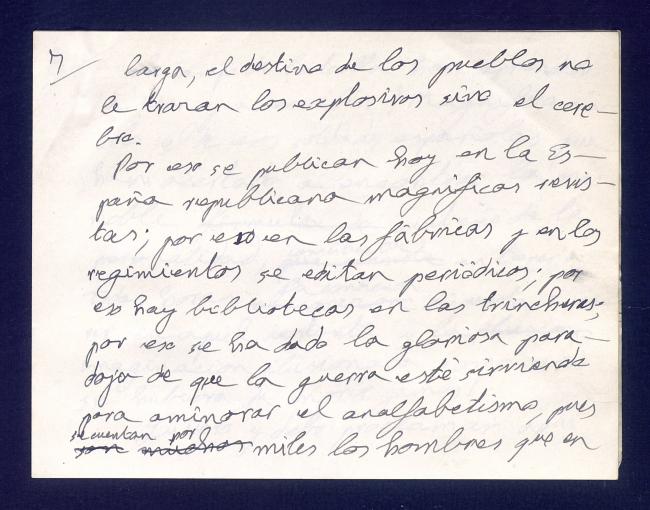 7/
larga, el destino de los pueblos no
le trazan los explosivos sino el cere-
bro.
Por eso se publican hoy en la Es-
paña republicana magníficas revis-
tas; por eso en las fábricas y en los
regimientos se editan periódicos; por
eso hay bibliotecas en las trincheras;
por eso se ha dado la gloriosa para-
doja de que la guerra esté sirviendo
para aminorar el analfabetismo, pues
se cuentan por
son muchos miles los hombres que en